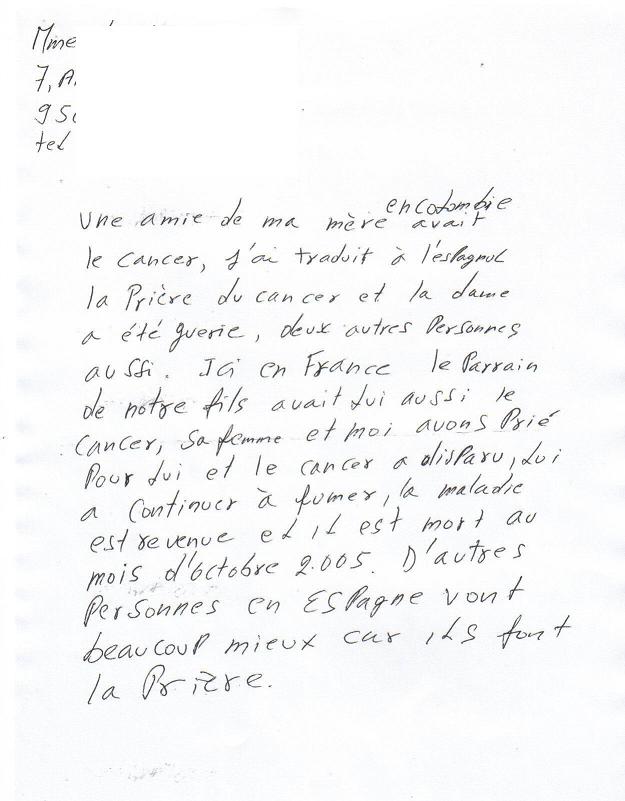 Mme
7, A.
95
tel
en colombie
Une amie de ma mère avait
le cancer, j'ai traduit à l'espagnol
la Prière du cancer et la dame
a été guerie, deux autres Personnes
aussi. Ici en France le Parrain
de notre fils avait lui aussi le
cancer, sa femme et moi avons Prié
Pour lui et le cancer a disparu, lui
a continuer à fumer, la maladie
est revenue et il est mort au
mois d'octobre 2.005. D'autres
Personnes en ESPagne vont
beaucouP mieux car ils font
la Prière.